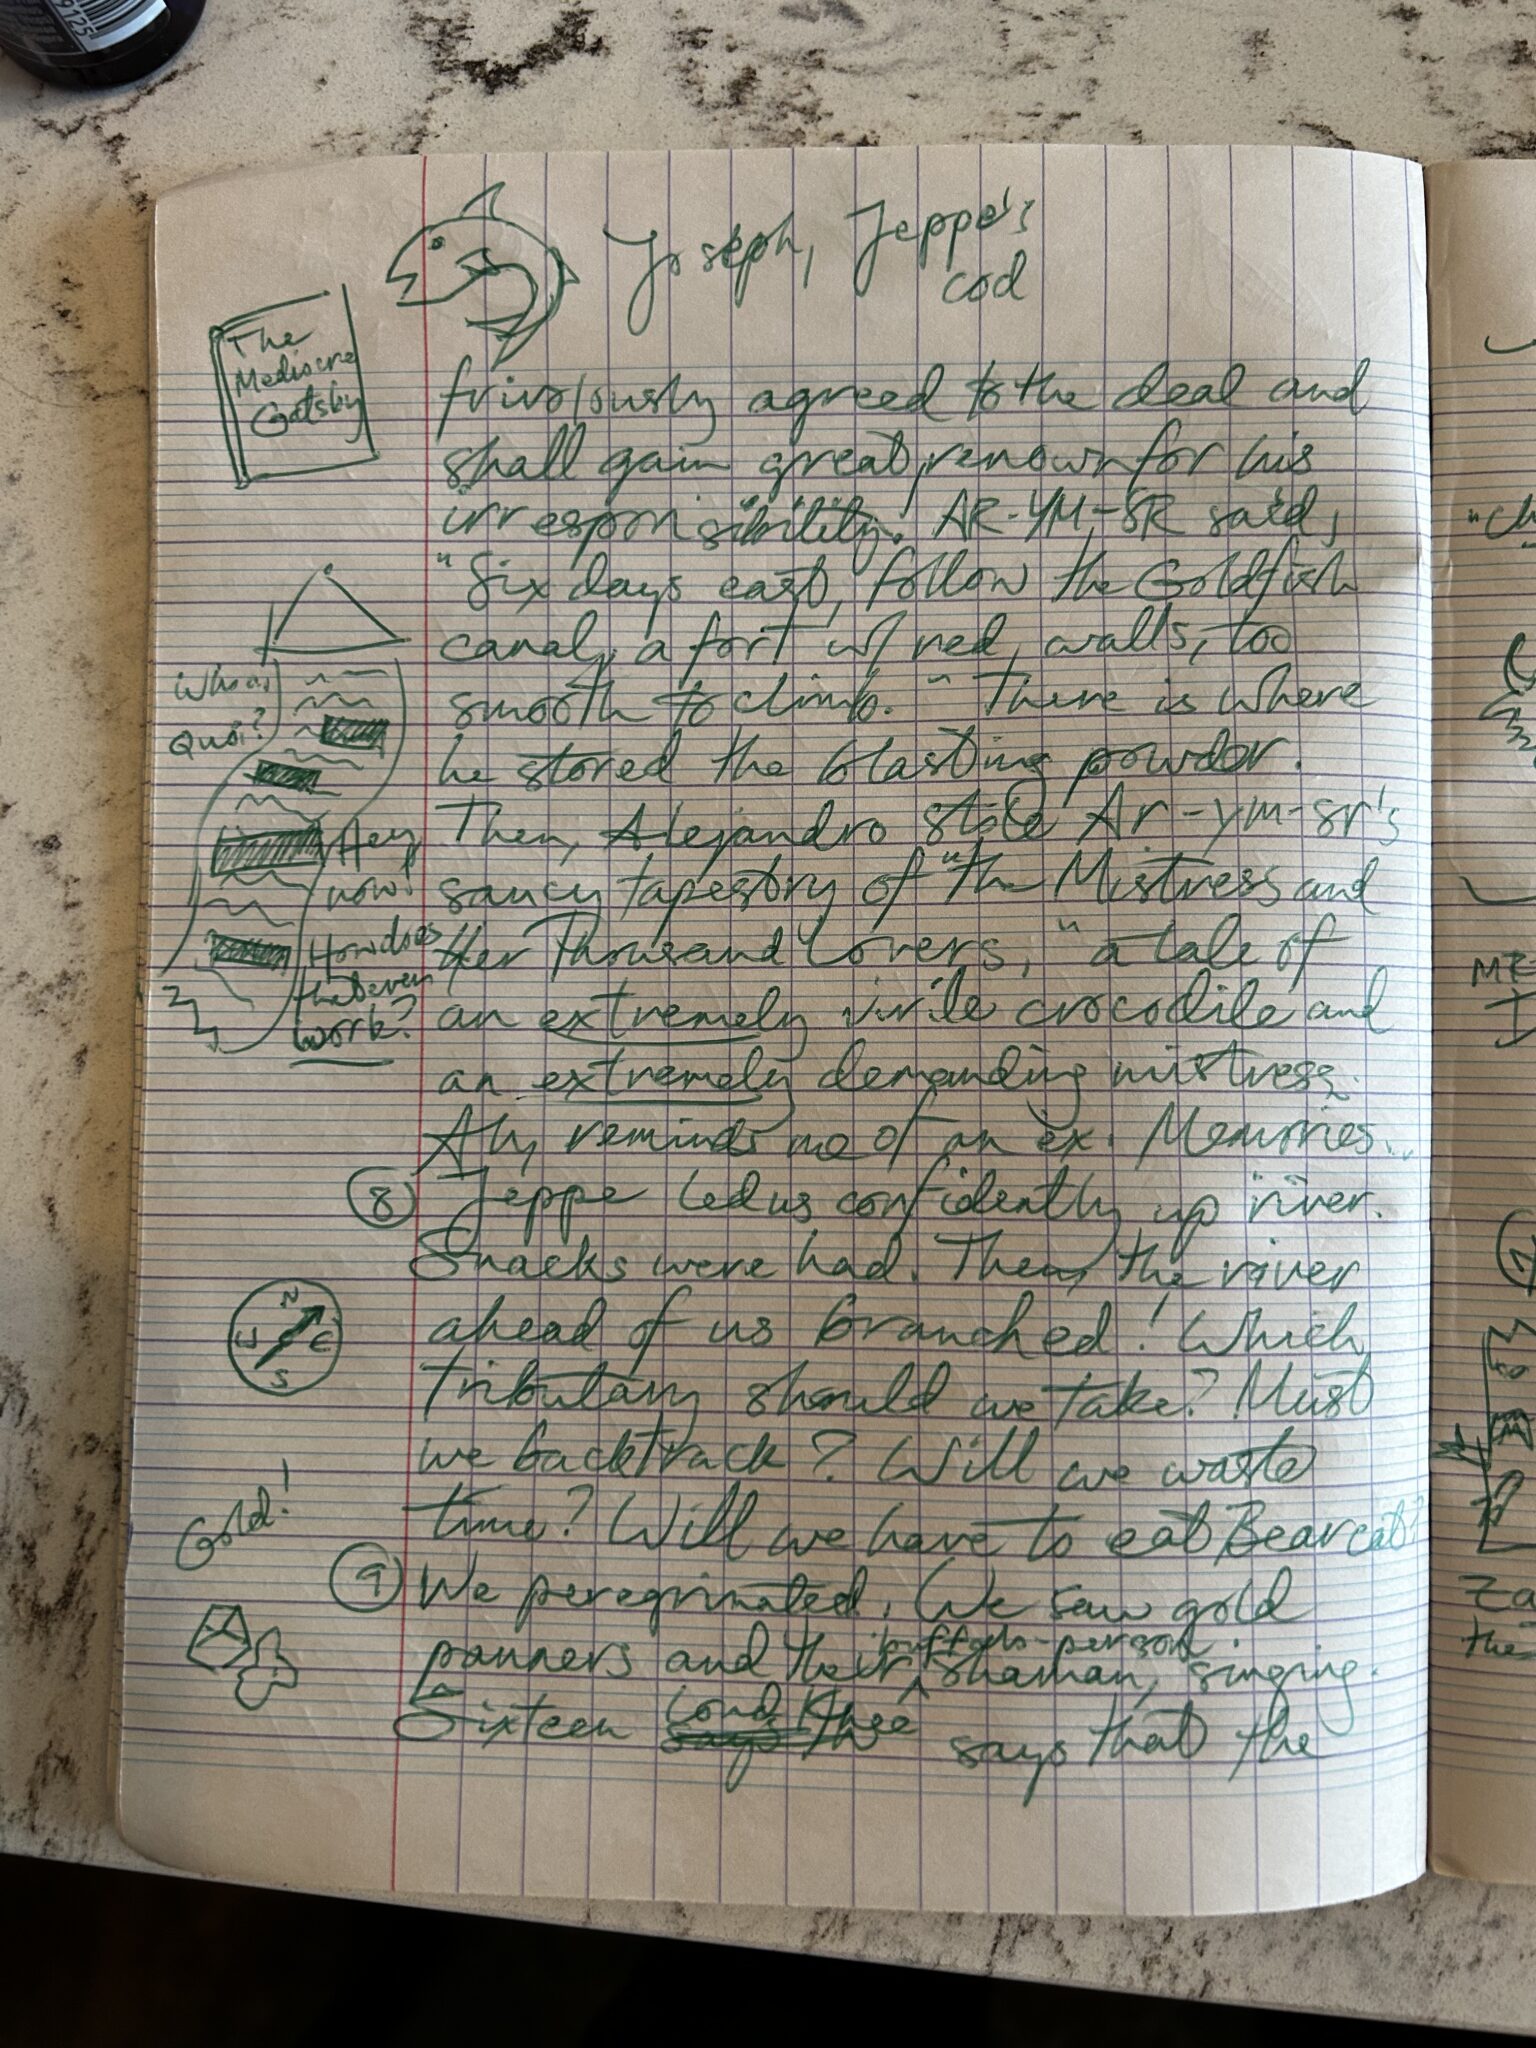 Joseph, Jeppe's
cod
The
Mediocre
Gatsby
frivolously agreed to the deal and
shall gain great renown for his
irresponsibility. AR-YM-SR said,
"Six days east, follow the Goldfish
canal, a fort w/ red walls, too
smooth to climb." There is where
he stored the blasting powder.
Then, Alejandro stole Ar-ym-sr's
saucy tapestry of "the Mistress and
Her Thousand Lovers," a tale of
an extremely virile crocodile and
an extremely demanding mistress.
Ah, reminds me of an ex. Memories...
Whoa!
Quoi?
Hey
now!
How does
that even
work?
8 Jeppe led us confidently up river.
Snacks were had. Then, the river
ahead of us branched! Which
tributary should we take? Must
we backtrack? Will we waste
time? Will we have to eat Bearcat?
N
W E
S
Gold!
9 We peregrinated. We saw gold
panners and their buffalo-person shaman, singing.
Sixteen says that the
9125